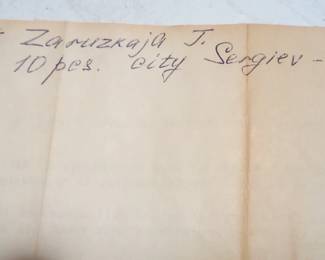 Zaruzkaja T.
10 pcs. city Sergiev -